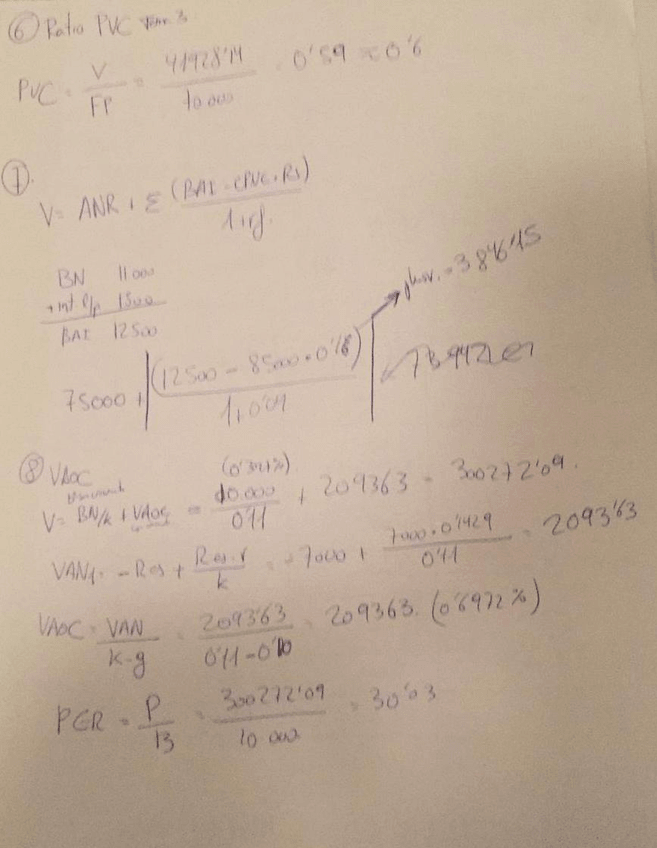 ⑥ Ratio PVC
PVC = V/FP = 41928'14/70.000 = 0'59 ≈ 0'6
⑦.
V = ANR + Σ (BAI - CPVC · RI)/1+rf.
BN 11000
+ int P/p 1500
BAI 12500
75000 + |(12500 - 85000 · 0'18)/1+0'09|
plusv. = 3846'15
⑧ VAOC
(0'301%)
V = BN/k + VAOC = 10.000/0'11 + 209363 = 300272'09.
VAN1 = -Res + Res·r/k = -7000 + 7000·0'1429/0'11 = 2093'63
VAOC = VAN/k-g = 2093'63/0'11-0'10 = 209363. (0'6972%)
PER = P/B = 300272'09/10 000 = 30'03